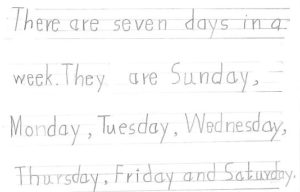 There are seven days in a
week. They are Sunday,
Monday, Tuesday, Wednesday,
Thursday, Friday and Saturday.